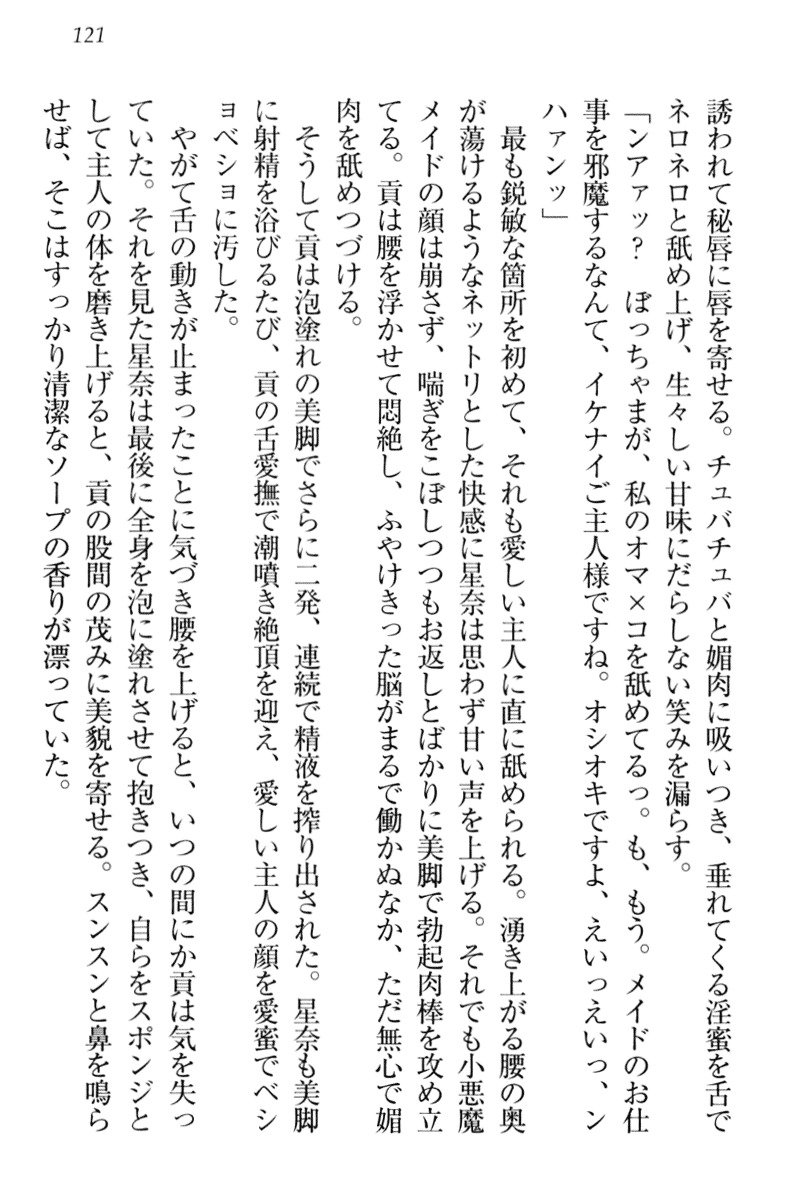 121
誘われて秘唇に唇を寄せる。チュバチュバと媚肉に吸いつき、垂れてくる淫蜜を舌で
ネロネロと舐め上げ、生々しい甘味にだらしない笑みを漏らす。
「ンアァッ？　ぼっちゃまが、私のオマ×コを舐めてるっ。も、もう。メイドのお仕
事を邪魔するなんて、イケナイご主人様ですね。オシオキですよ、えいっえいっ、ン
ハァンッ」
　最も鋭敏な箇所を初めて、それも愛しい主人に直に舐められる。湧き上がる腰の奥
が蕩けるようなネットリとした快感に星奈は思わず甘い声を上げる。それでも小悪魔
メイドの顔は崩さず、喘ぎをこぼしつつもお返しとばかりに美脚で勃起肉棒を攻め立
てる。貢は腰を浮かせて悶絶し、ふやけきった脳がまるで働かぬなか、ただ無心で媚
肉を舐めつづける。
　そうして貢は泡塗れの美脚でさらに二発、連続で精液を搾り出された。星奈も美脚
に射精を浴びるたび、貢の舌愛撫で潮噴き絶頂を迎え、愛しい主人の顔を愛蜜でベシ
ョベショに汚した。
　やがて舌の動きが止まったことに気づき腰を上げると、いつの間にか貢は気を失っ
ていた。それを見た星奈は最後に全身を泡に塗れさせて抱きつき、自らをスポンジと
して主人の体を磨き上げると、貢の股間の茂みに美貌を寄せる。スンスンと鼻を鳴ら
せば、そこはすっかり清潔なソープの香りが漂っていた。